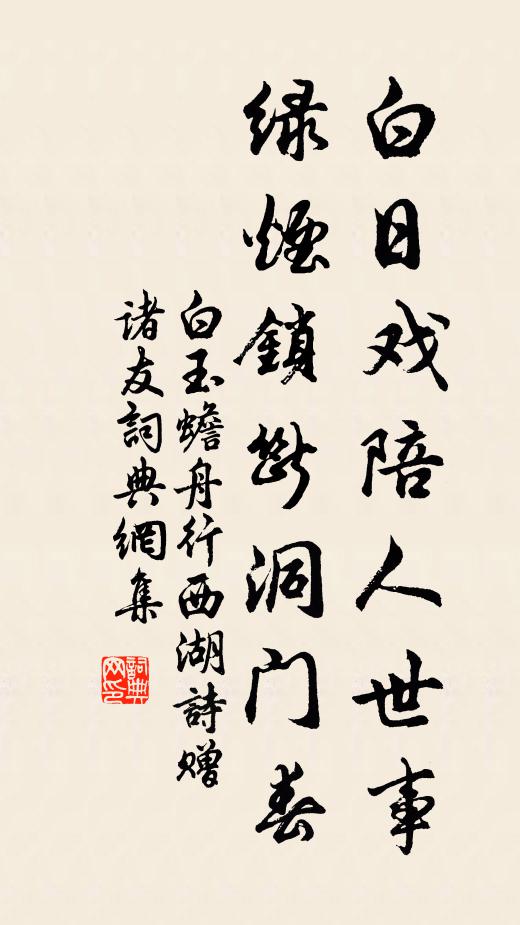 白日戏陪人世事
绿烟锁断洞门春
白玉蟾舟行西湖詩赠
诸友詞典網集
詞典网印